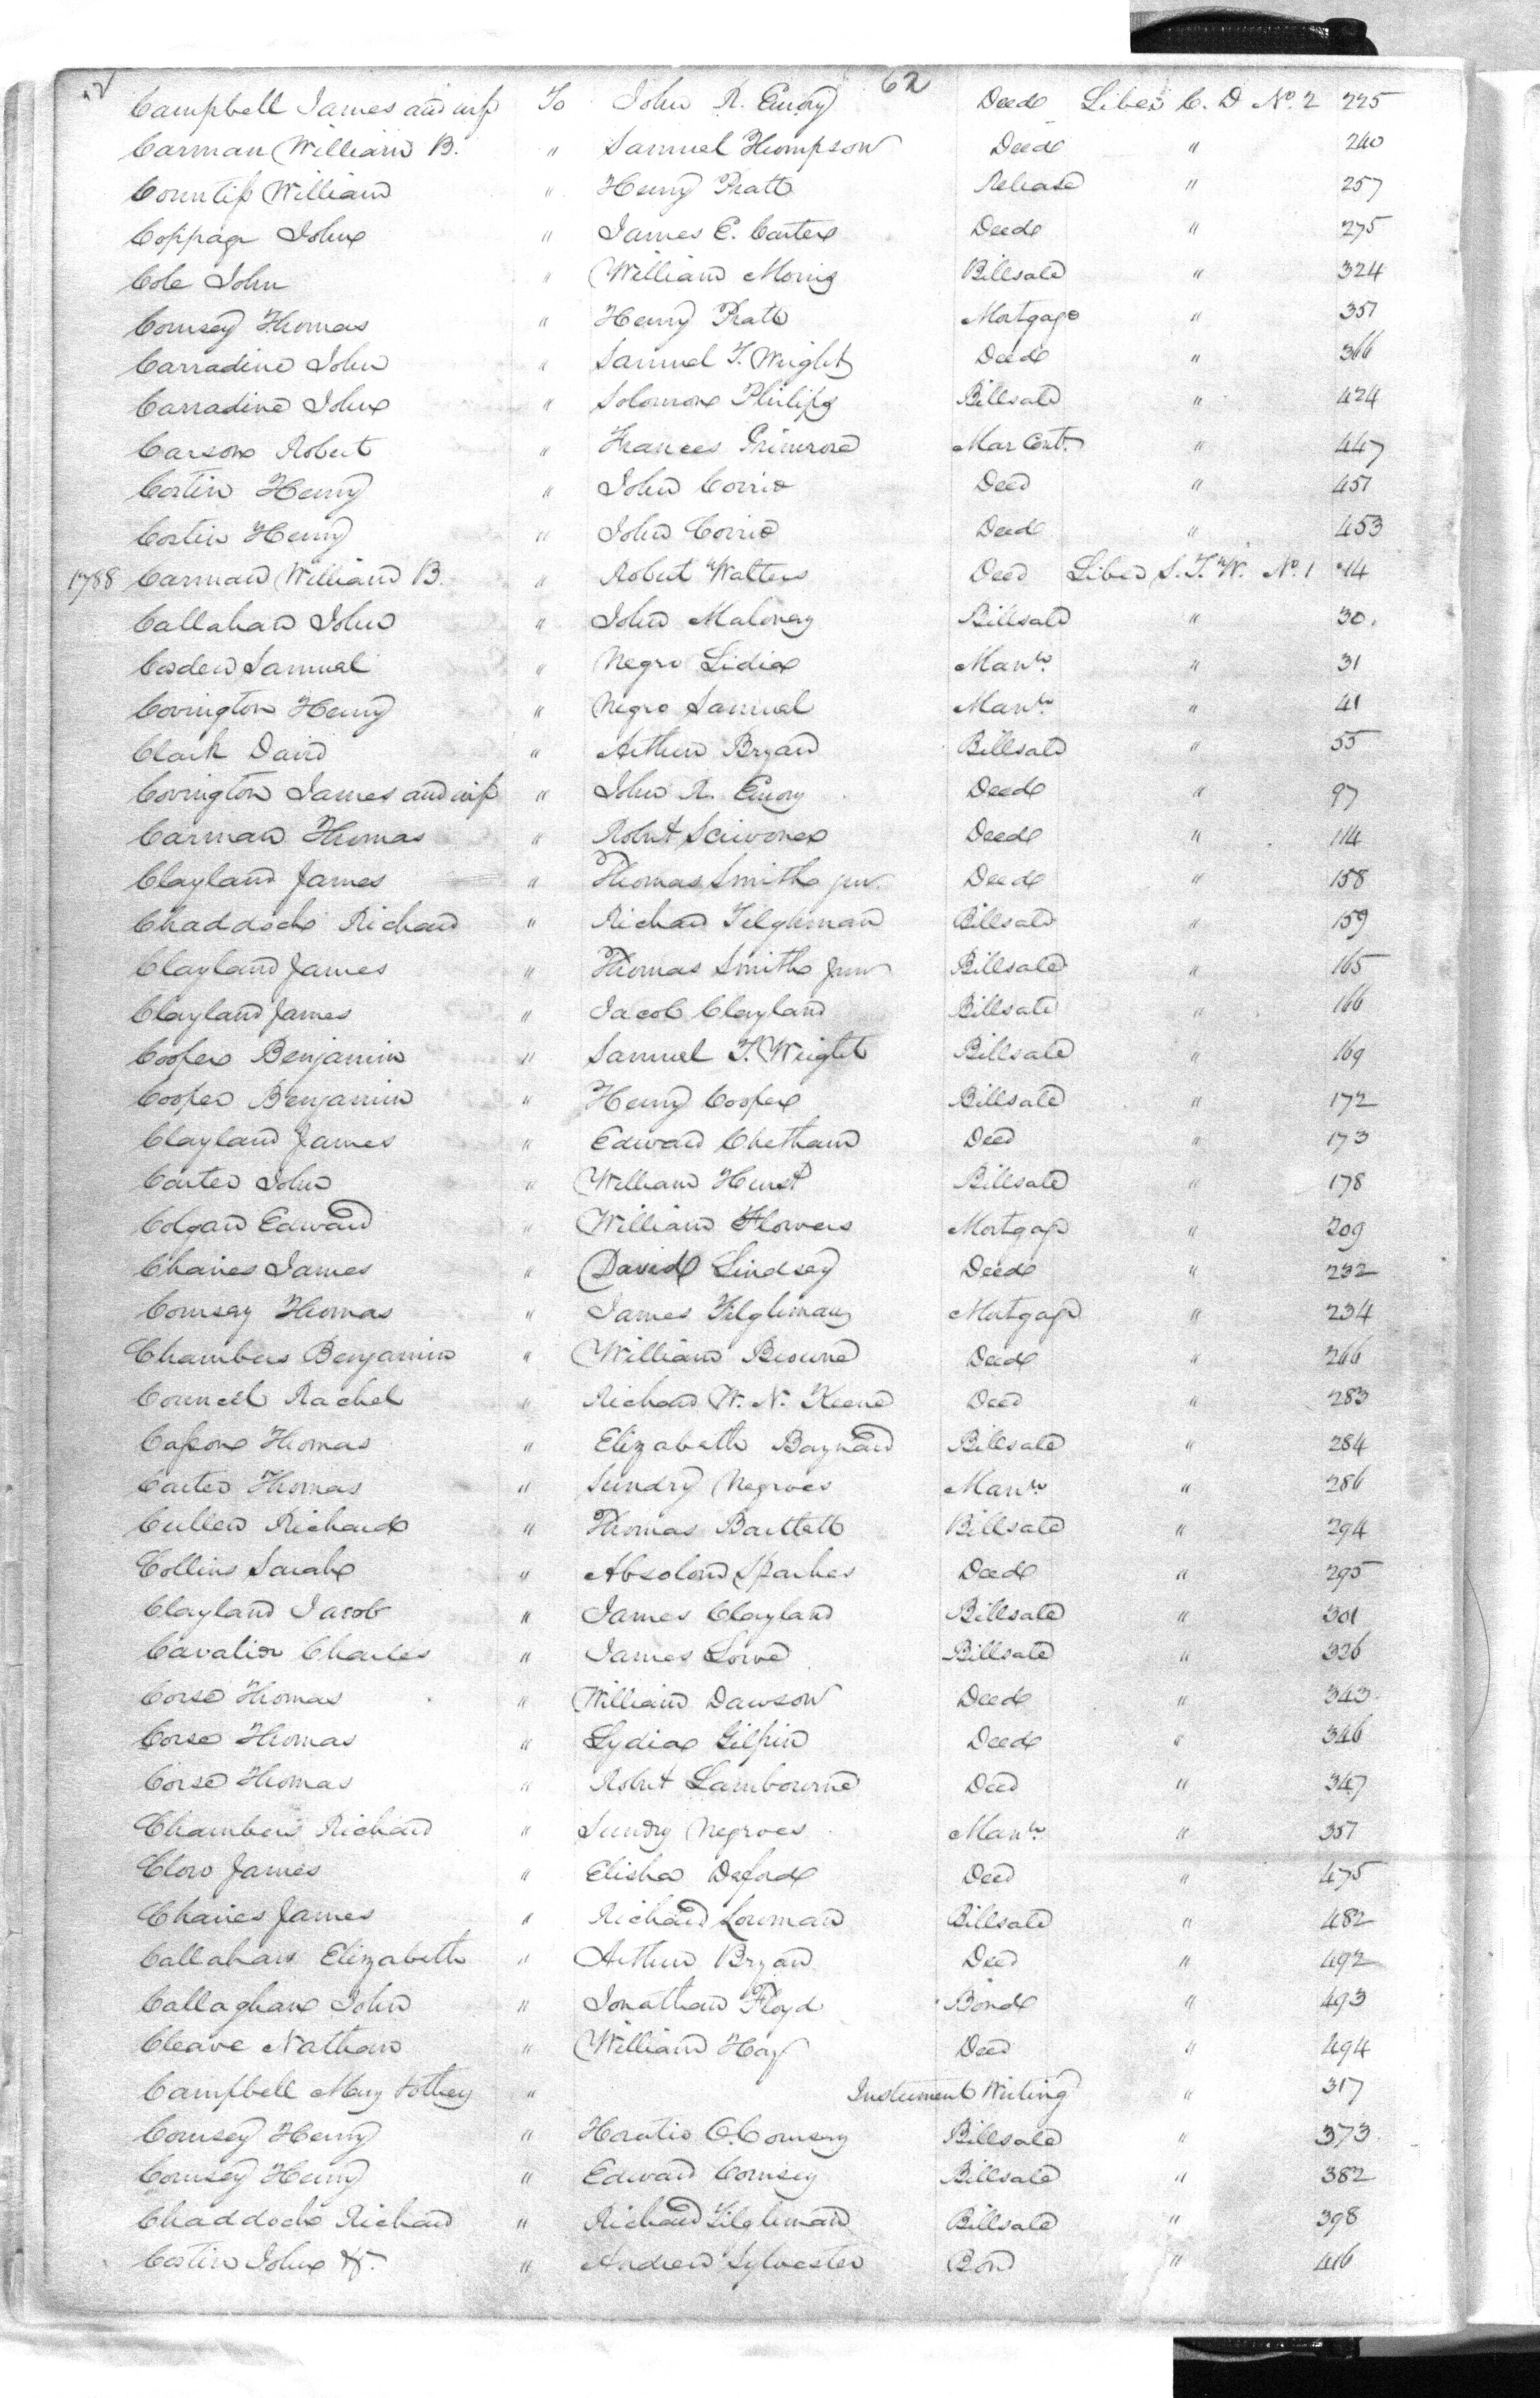 62
Campbell James and wife To John R. Emory Deed Liber C. D No. 2 225
Carman William B. " Samuel Thompson Deed " 240
Countiss William " Henry Pratt Release " 257
Coppage John " James E. Carter Deed " 275
Cole John " William Morris Billsale " 324
Comsey Thomas " Henry Pratt Mortgage " 351
Carradine John " Samuel T. Wright Deed " 366
Carradine John " Solomon Philips Billsale " 424
Carson Robert " Frances Primrose Mar Cont. " 447
Costin Henry " John Corrie Deed " 451
Costin Henry " John Corrie Deed " 453
1788 Carman William B. " Robert Walters Deed Liber S. T. W. No. 1 14
Callahan John " John Maloney Billsale " 30.
Cosden Samuel " Negro Lidia Man " 31
Covington Henry " Negro Samuel Man " 41
Clark David " Arthur Bryan Billsale " 55
Covington James and wife " John R. Emory Deed " 97
Carman Thomas " Robert Scrivener Deed " 114
Clayland James " Thomas Smith jun. Deed " 158
Chaddock Richard " Richard Tilghman Billsale " 159
Clayland James " Thomas Smith Junr Billsale " 165
Clayland James " Jacob Clayland Billsale " 166
Cooper Benjamin " Samuel T. Wright Billsale " 169
Cooper Benjamin " Henry Cooper Billsale " 172
Clayland James " Edward Chetham Deed " 173
Carter John " William Hurst Billsale " 178
Colgan Edward " William Flowers Mortgage " 209
Chaires James " David Lindsey Deed " 232
Comsey Thomas " James Tilghman Mortgage " 234
Chambers Benjamin " William Browne Deed " 266
Councel Rachel " Richard W. N. Keene Deed " 283
Casson Thomas " Elizabeth Baynard Billsale " 284
Carter Thomas " Sundry Negroes Man " 286
Cullen Richard " Thomas Bartlett Billsale " 294
Collins Sarah " Absolom Sparkes Deed " 295
Clayland Jacob " James Clayland Billsale " 301
Cavalier Charles " James Lowe Billsale " 326
Corse Thomas " William Dawson Deed " 343
Corse Thomas " Lydia Gilpin Deed " 346
Corse Thomas " Robert Lambourne Deed " 347
Chambers Richard " Sundry Negroes Man " 357
Clow James " Elisha Deford Deed " 475
Chaires James " Richard Lowman Billsale " 482
Callahan Elizabeth " Arthur Bryan Deed " 492
Callaghane John " Jonathan Floyd Bond " 493
Cleave Nathan " William Hay Deed " 494
Campbell Mary " Instrument Writing " 317
Comsey Henry " Horatio Comsey Billsale " 373
Comsey Henry " Edward Comsey Billsale " 382
Chaddock Richard " Richard Tilghman Billsale " 398
Costin John H. " Andrew Sylvester Bond " 416